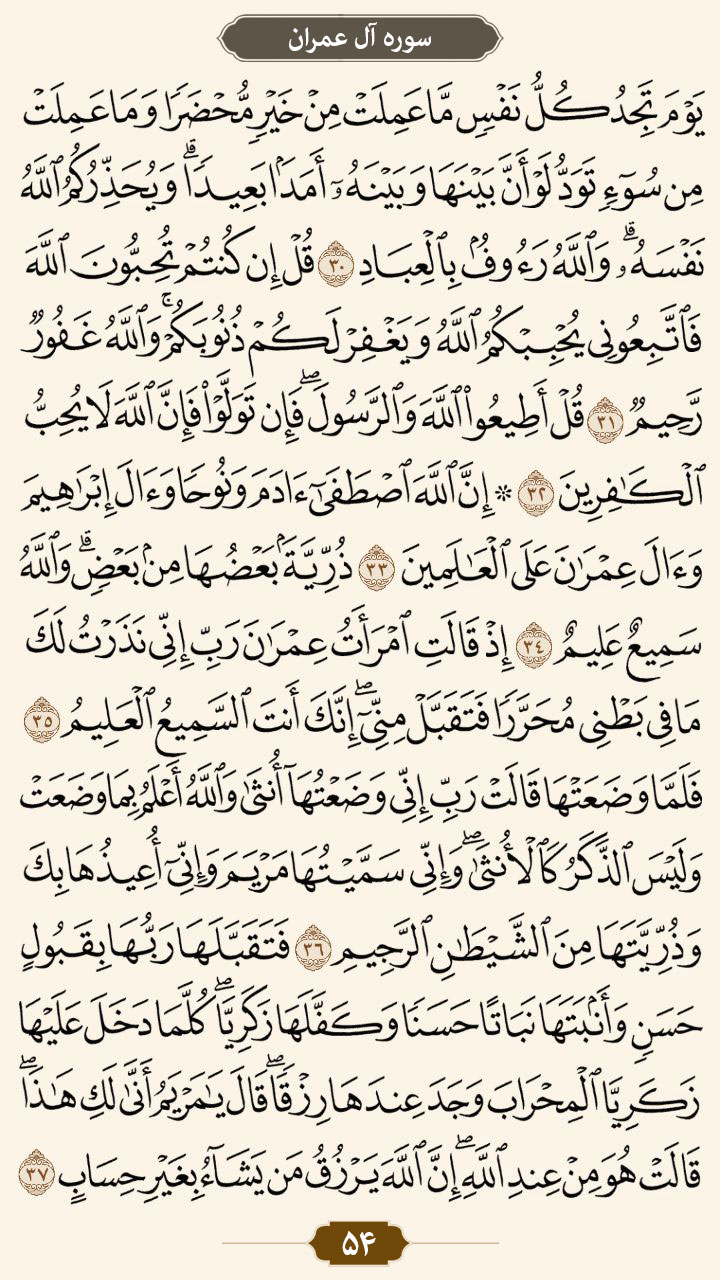 سوره آل عمران
يَوۡمَ تَجِدُ كُلُّ نَفۡسٖ مَّا عَمِلَتۡ مِنۡ خَيۡرٖ مُّحۡضَرٗا وَمَا عَمِلَتۡ
مِن سُوٓءٖ تَوَدُّ لَوۡ أَنَّ بَيۡنَهَا وَبَيۡنَهُۥٓ أَمَدَۢا بَعِيدٗاۗ وَيُحَذِّرُكُمُ ٱللَّهُ
نَفۡسَهُۥۗ وَٱللَّهُ رَءُوفُۢ بِٱلۡعِبَادِ ٣٠ قُلۡ إِن كُنتُمۡ تُحِبُّونَ ٱللَّهَ
فَٱتَّبِعُونِي يُحۡبِبۡكُمُ ٱللَّهُ وَيَغۡفِرۡ لَكُمۡ ذُنُوبَكُمۡۚ وَٱللَّهُ غَفُورٞ
رَّحِيمٞ ٣١ قُلۡ أَطِيعُواْ ٱللَّهَ وَٱلرَّسُولَۖ فَإِن تَوَلَّوۡاْ فَإِنَّ ٱللَّهَ لَا يُحِبُّ
ٱلۡكَٰفِرِينَ ٣٢ ۞ إِنَّ ٱللَّهَ ٱصۡطَفَىٰٓ ءَادَمَ وَنُوحٗا وَءَالَ إِبۡرَٰهِيمَ
وَءَالَ عِمۡرَٰنَ عَلَى ٱلۡعَٰلَمِينَ ٣٣ ذُرِّيَّةَۢ بَعۡضُهَا مِنۢ بَعۡضٖۗ وَٱللَّهُ
سَمِيعٌ عَلِيمٌ ٣٤ إِذۡ قَالَتِ ٱمۡرَأَتُ عِمۡرَٰنَ رَبِّ إِنِّي نَذَرۡتُ لَكَ
مَا فِي بَطۡنِي مُحَرَّرٗا فَتَقَبَّلۡ مِنِّيٓۖ إِنَّكَ أَنتَ ٱلسَّمِيعُ ٱلۡعَلِيمُ ٣٥
فَلَمَّا وَضَعَتۡهَا قَالَتۡ رَبِّ إِنِّي وَضَعۡتُهَآ أُنثَىٰ وَٱللَّهُ أَعۡلَمُ بِمَا وَضَعَتۡ
وَلَيۡسَ ٱلذَّكَرُ كَٱلۡأُنثَىٰۖ وَإِنِّي سَمَّيۡتُهَا مَرۡيَمَ وَإِنِّيٓ أُعِيذُهَا بِكَ
وَذُرِّيَّتَهَا مِنَ ٱلشَّيۡطَٰنِ ٱلرَّجِيمِ ٣٦ فَتَقَبَّلَهَا رَبُّهَا بِقَبُولٍ
حَسَنٖ وَأَنۢبَتَهَا نَبَاتًا حَسَنٗا وَكَفَّلَهَا زَكَرِيَّاۖ كُلَّمَا دَخَلَ عَلَيۡهَا
زَكَرِيَّا ٱلۡمِحۡرَابَ وَجَدَ عِندَهَا رِزۡقٗاۖ قَالَ يَٰمَرۡيَمُ أَنَّىٰ لَكِ هَٰذَاۖ
قَالَتۡ هُوَ مِنۡ عِندِ ٱللَّهِۖ إِنَّ ٱللَّهَ يَرۡزُقُ مَن يَشَآءُ بِغَيۡرِ حِسَابٍ ٣٧
۵۴